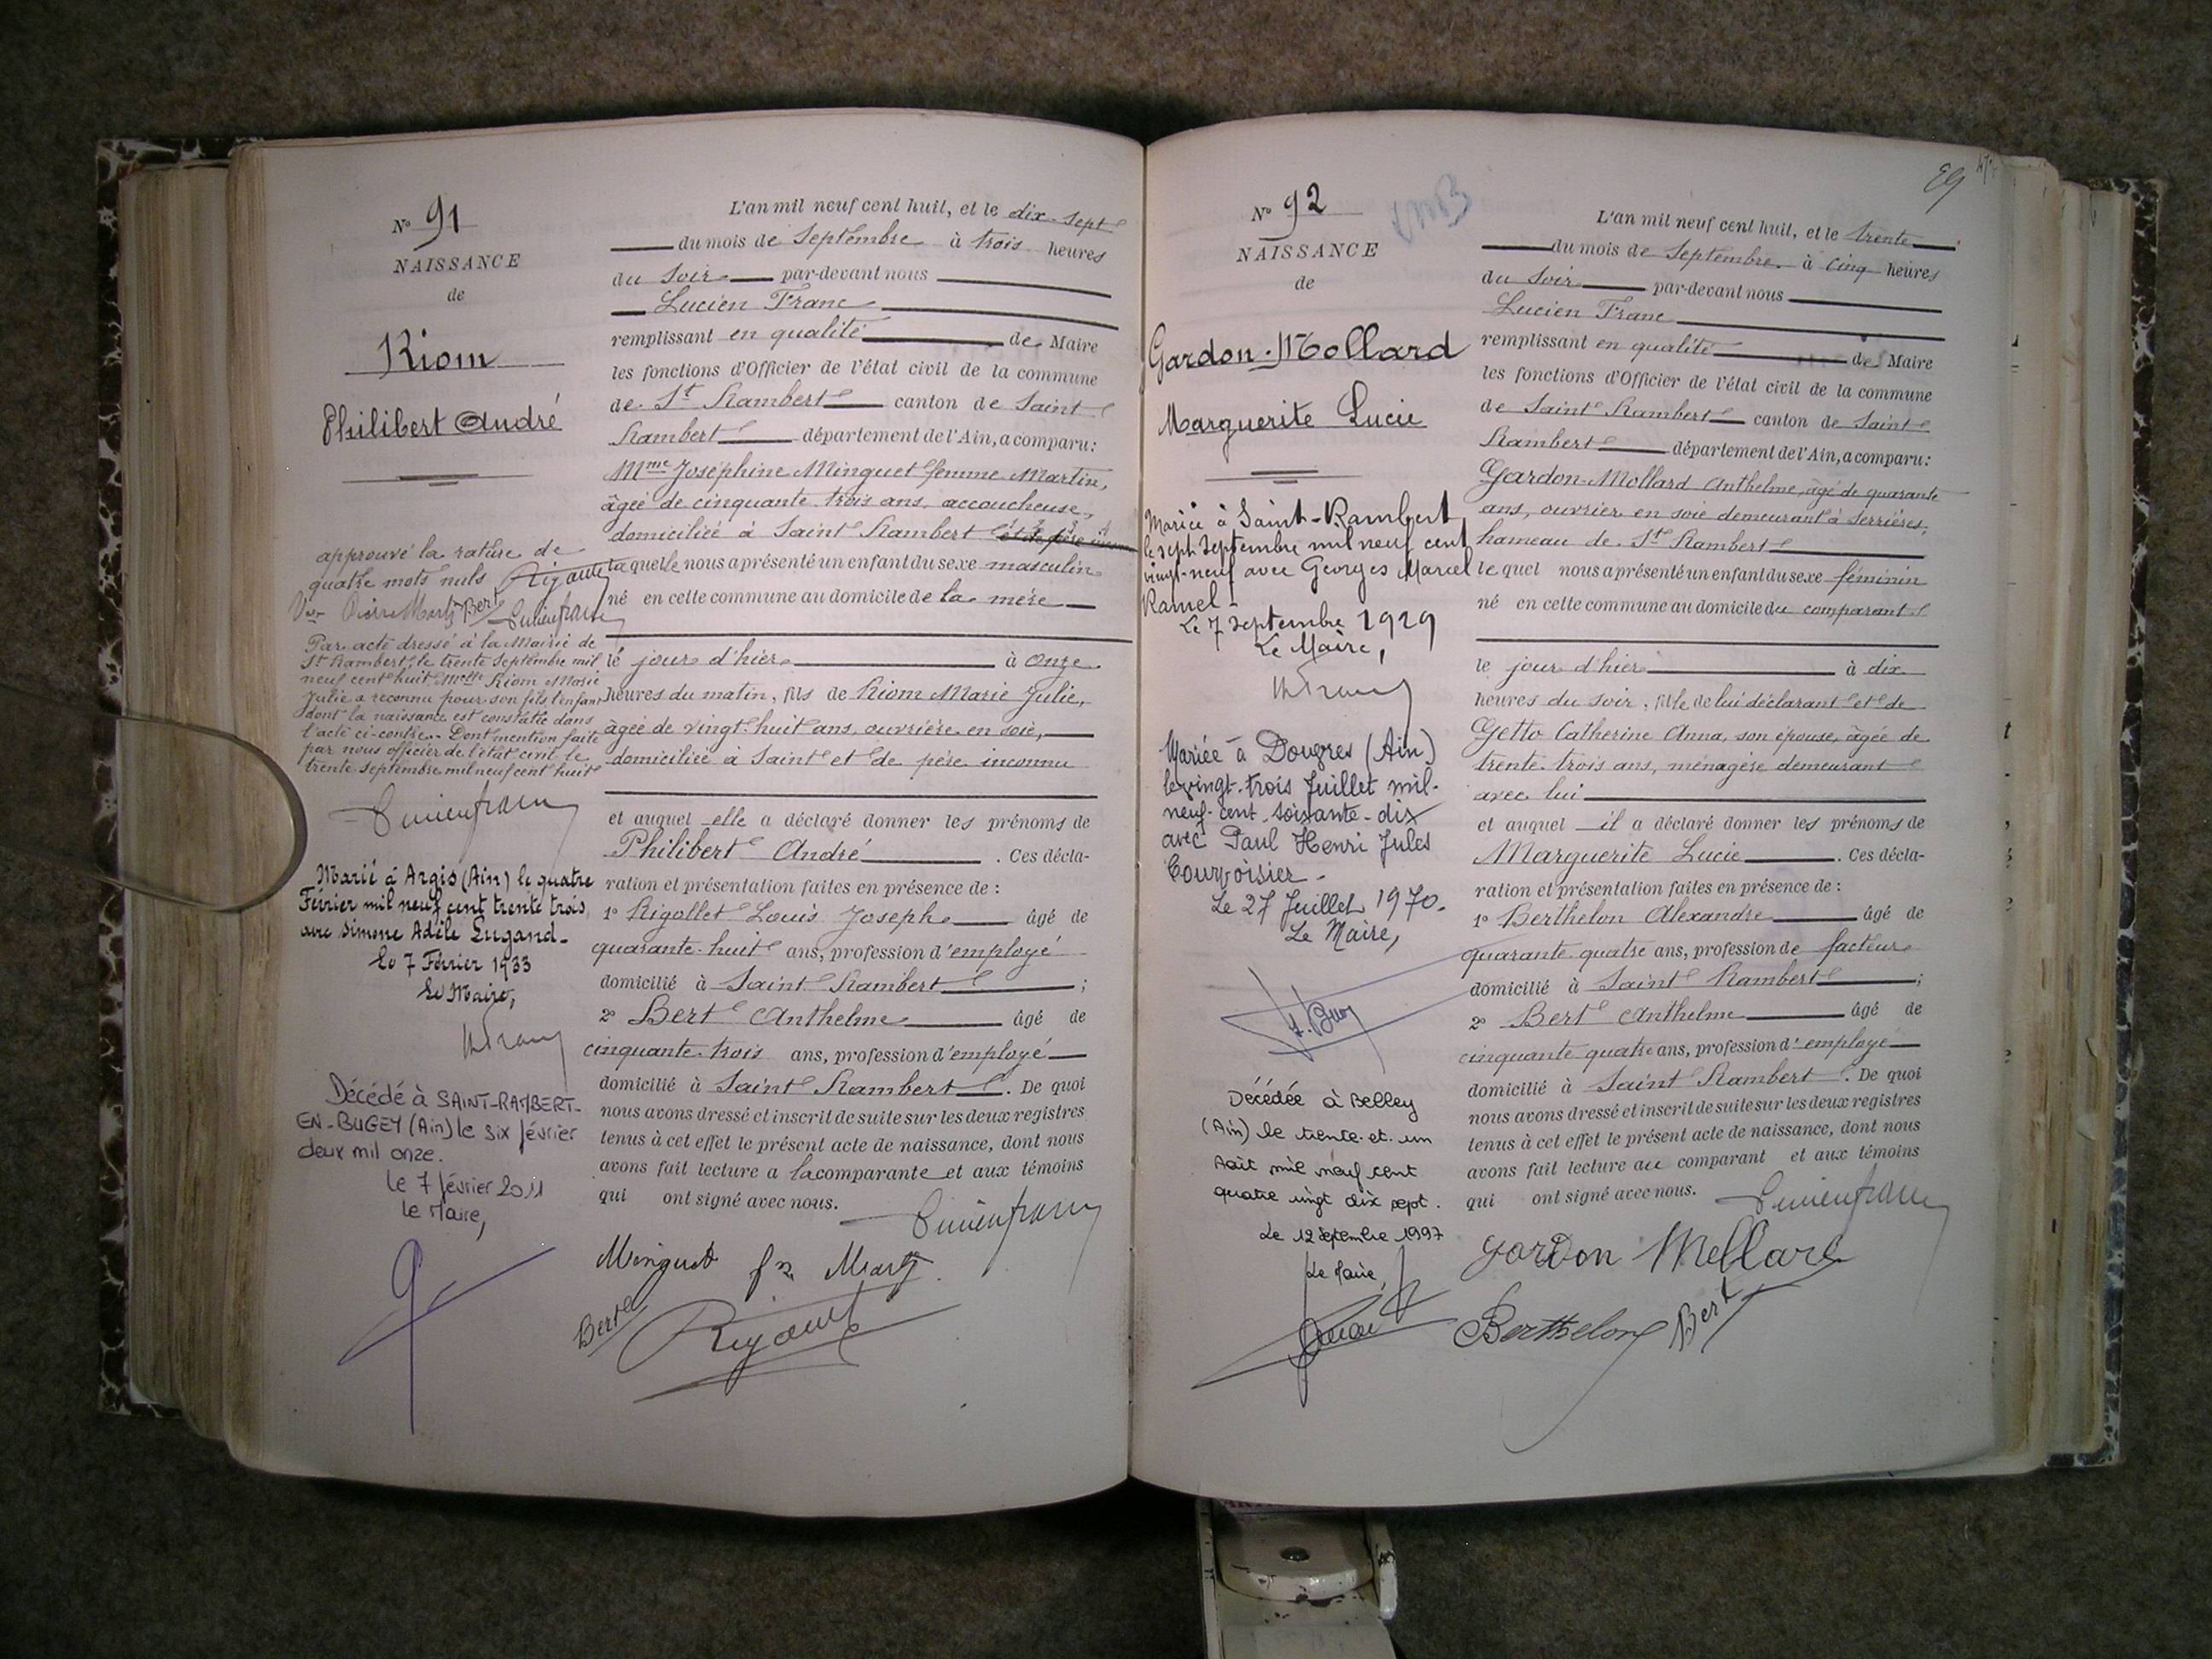 N° 91
NAISSANCE
de
Riom
Philibert André
approuvé la rature de
quatre mots nuls
Par acte dressé à la Mairie de
St Rambert, le trente Septembre mil
neuf cent huit, Melle Riom Marie
Julie a reconnu pour son fils l'enfant
dont la naissance est constatée dans
l'acte ci-contre. - Dont mention faite
par nous officier de l'état civil le
trente septembre mil neuf cent huit
Marié à Argis (Ain) le quatre
Février mil neuf cent trente trois
avec Simone Adèle Lugand -
le 7 Février 1933
Le Maire,
Décédé à SAINT-RAMBERT-
EN-BUGEY (Ain) le six février
deux mil onze.
Le 7 février 2011
Le Maire,
L'an mil neuf cent huit, et le dix-sept
du mois de Septembre à trois heures
du soir par-devant nous
Lucien Franc
remplissant en qualité de Maire
les fonctions d'Officier de l'état civil de la commune
de St Rambert canton de Saint
Rambert département de l'Ain, a comparu:
Mme Joséphine Minguet femme Martin,
âgée de cinquante trois ans, accoucheuse,
domiciliée à Saint Rambert et de père
laquelle nous a présenté un enfant du sexe masculin
né en cette commune au domicile de la mère
le jour d'hier à onze
heures du matin, fils de Riom Marie Julie,
âgée de vingt-huit ans, ouvrière en soie,
domiciliée à Saint et de père inconnu
et auquel elle a déclaré donner les prénoms de
Philibert André. Ces décla-
ration et présentation faites en présence de :
1° Rigollet Louis Joseph âgé de
quarante-huit ans, profession d'employé
domicilié à Saint Rambert ;
2° Bert Anthelme âgé de
cinquante-trois ans, profession d'employé
domicilié à Saint Rambert. De quoi
nous avons dressé et inscrit de suite sur les deux registres
tenus à cet effet le présent acte de naissance, dont nous
avons fait lecture a la comparante et aux témoins
qui ont signé avec nous.
Minguet
Bert
89
N° 92
NAISSANCE
de
Gardon-Mollard
Marguerite Lucie
Mariée à Saint-Rambert
le sept Septembre mil neuf cent
vingt-neuf avec Georges Marcel
Ramel -
Le 7 Septembre 1929
Le Maire,
Mariée à Dougres (Ain)
le vingt-trois Juillet mil-
neuf-cent-soixante-dix
avec Paul Henri Jules
Courvoisier -
Le 27 Juillet 1970.
Le Maire,
Décédée à Belley
(Ain) le trente-et-un
Août mil neuf cent
quatre vingt dix sept.
Le 12 Septembre 1997
Le Maire,
L'an mil neuf cent huit, et le trente
du mois de Septembre à cinq heures
du soir par-devant nous
Lucien Franc
remplissant en qualité de Maire
les fonctions d'Officier de l'état civil de la commune
de Saint Rambert canton de Saint
Rambert département de l'Ain, a comparu:
Gardon-Mollard Anthelme, âgé de quarante
ans, ouvrier en soie demeurant à Serrières,
hameau de St Rambert
lequel nous a présenté un enfant du sexe féminin
né en cette commune au domicile du comparant
le jour d'hier à dix
heures du soir, fille de lui déclarant et de
Getto Catherine Anna, son épouse, âgée de
trente-trois ans, ménagère demeurant
avec lui
et auquel il a déclaré donner les prénoms de
Marguerite Lucie. Ces décla-
ration et présentation faites en présence de :
1° Berthelon Alexandre âgé de
quarante quatre ans, profession de facteur
domicilié à Saint Rambert ;
2° Bert Anthelme âgé de
cinquante quatre ans, profession d'employé
domicilié à Saint Rambert. De quoi
nous avons dressé et inscrit de suite sur les deux registres
tenus à cet effet le présent acte de naissance, dont nous
avons fait lecture au comparant et aux témoins
qui ont signé avec nous.
Gardon Mollard
Berthelon Bert